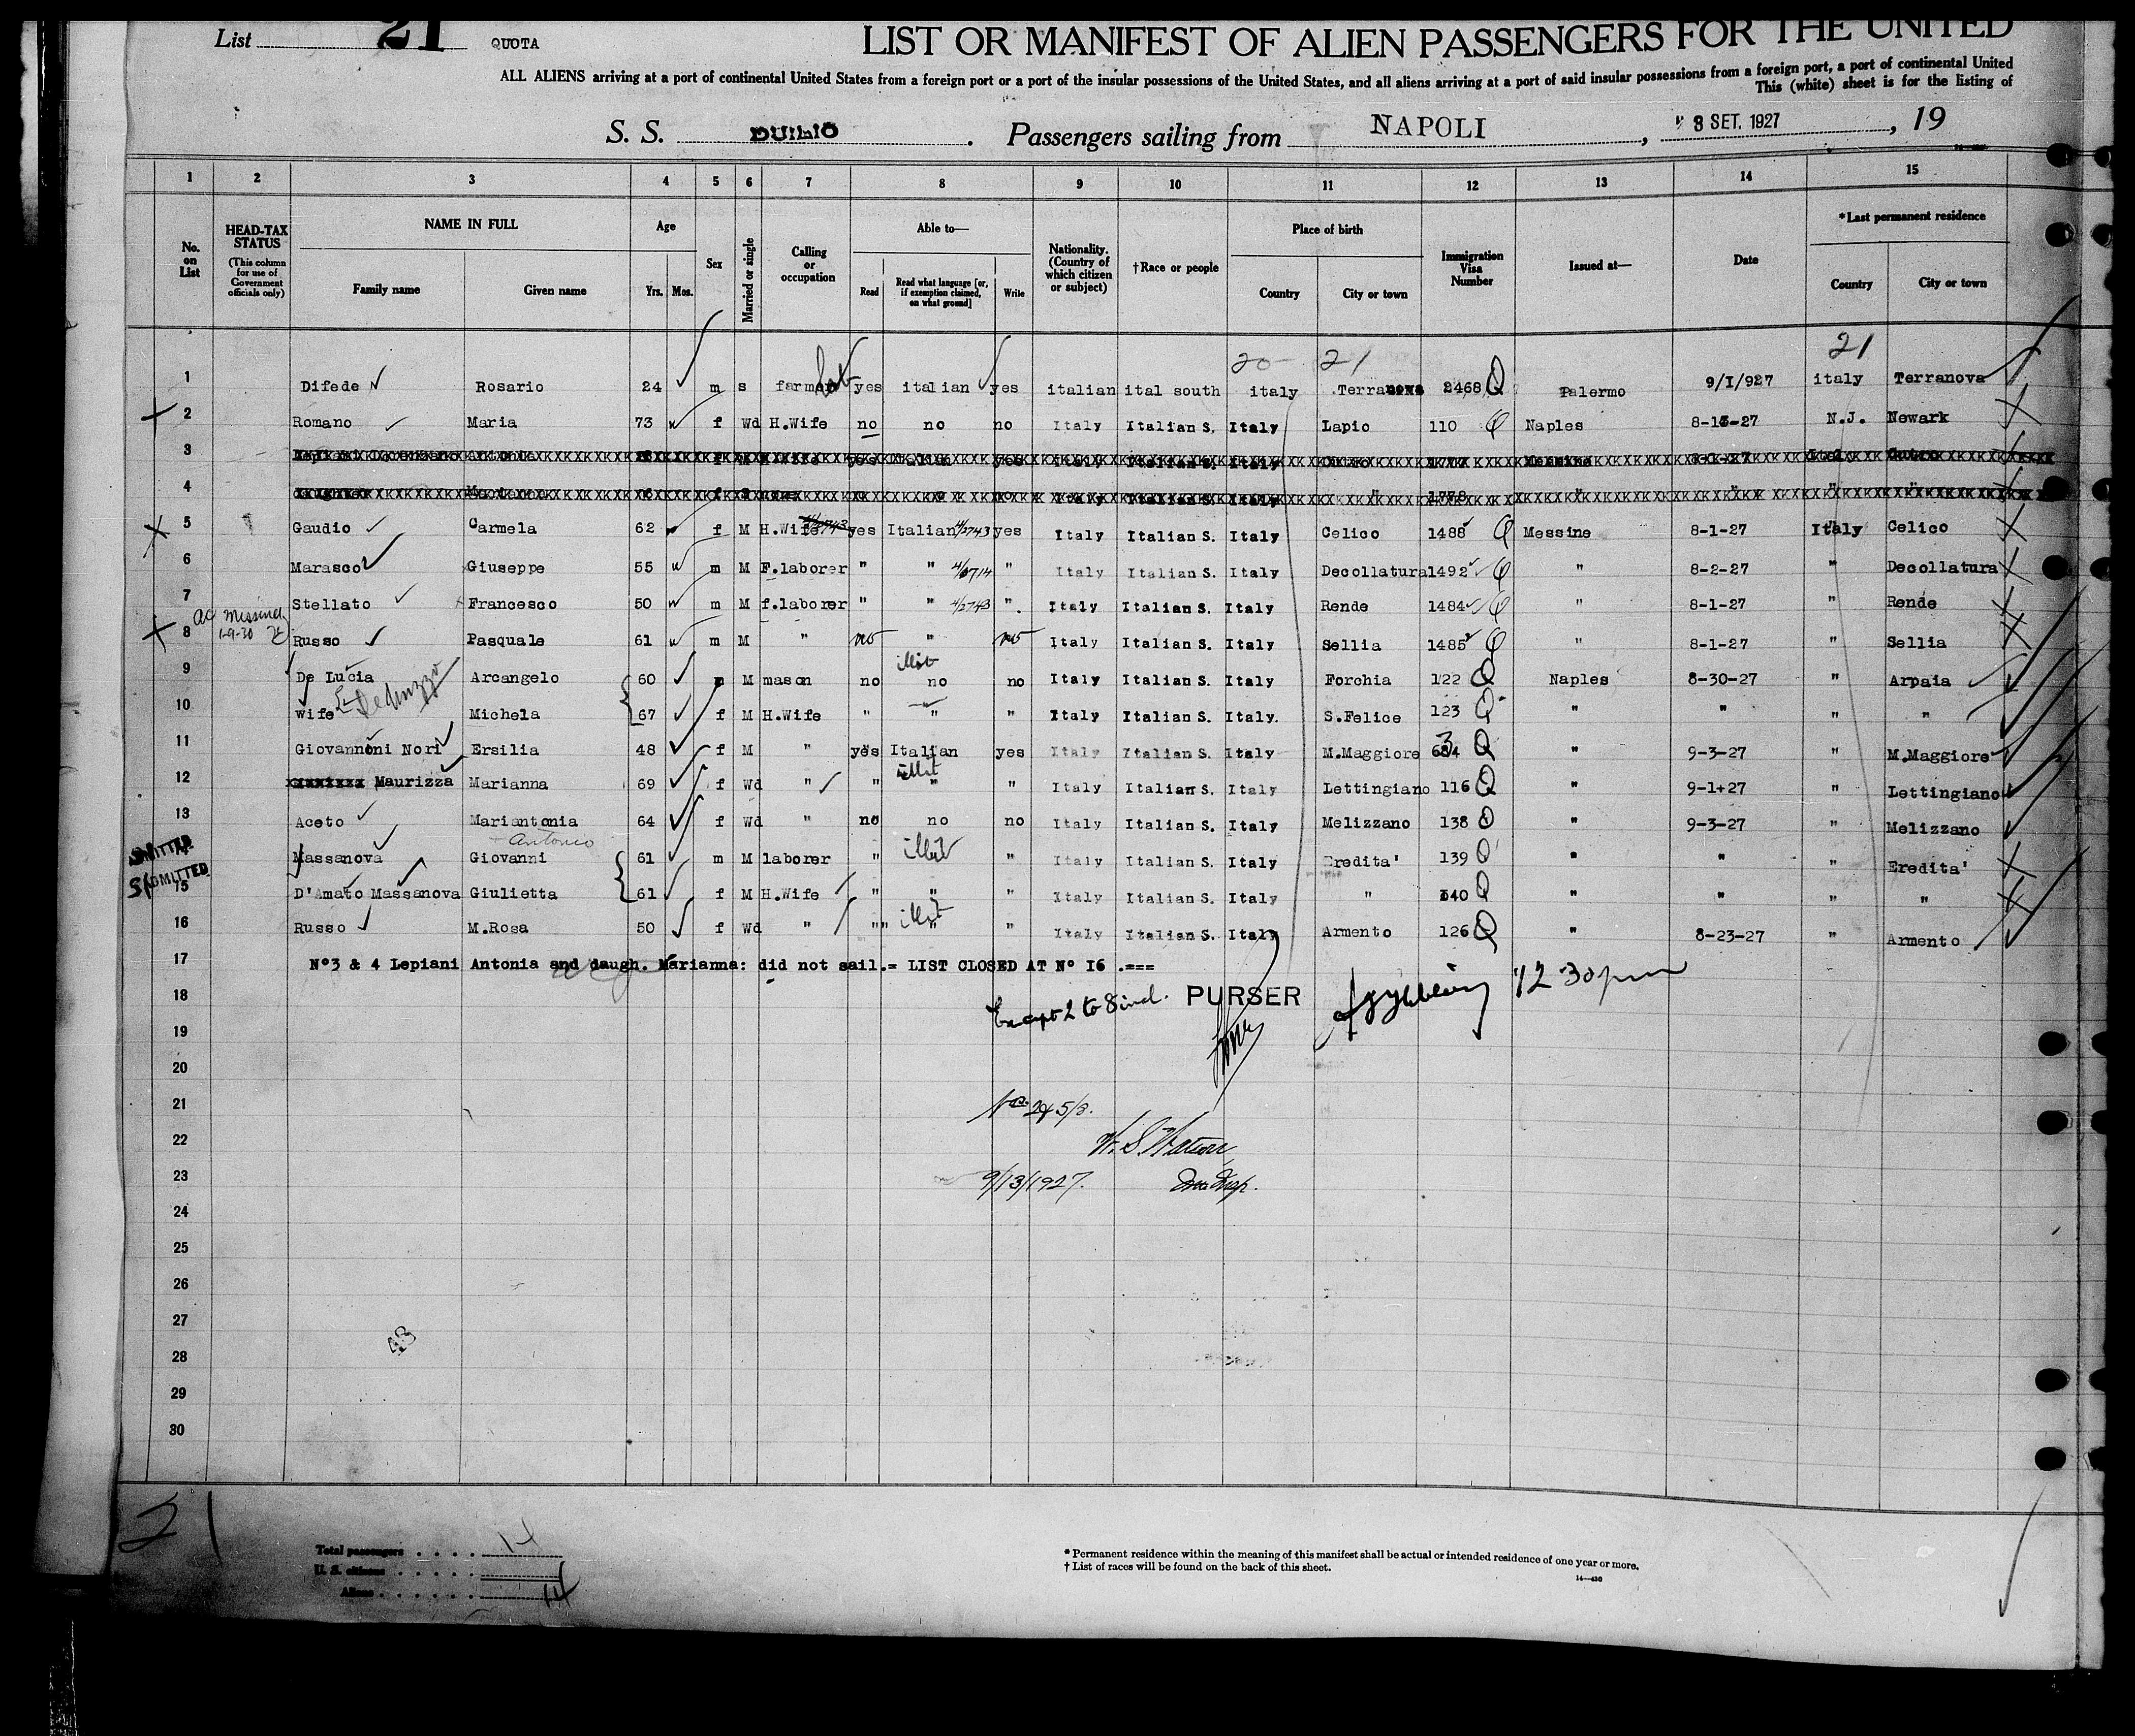 List 21 QUOTA
LIST OR MANIFEST OF ALIEN PASSENGERS FOR THE UNITED
ALL ALIENS arriving at a port of continental United States from a foreign port or a port of the insular possessions of the United States, and all aliens arriving at a port of said insular possessions from a foreign port, a port of continental United
This (white) sheet is for the listing of
S. S. DUILIO. Passengers sailing from NAPOLI, 8 SET. 1927, 19
1 2 3 4 5 6 7 8 9 10 11 12 13 14 15
No. on List
HEAD-TAX STATUS (This column for use of Government officials only)
NAME IN FULL
Family name Given name
Age
Yrs. Mos.
Sex
Married or single
Calling or occupation
Able to—
Read Read what language [or, if exemption claimed, on what ground] Write
Nationality. (Country of which citizen or subject)
†Race or people
Place of birth
Country City or town
Immigration Visa Number
Issued at—
Date
*Last permanent residence
Country City or town
20 21 21
1 Difede Rosario 24 m s farmer lab yes italian yes italian ital south italy Terranova 2468 Q Palermo 9/I/927 italy Terranova
2 Romano Maria 73 f Wd H.Wife no no no Italy Italian S. Italy Lapio 110 Q Naples 8-13-27 N.J. Newark
3 Antonia Italy Italian S. Italy Messine
4 Italy Italian S. Italy " 1778 " " " "
5 Gaudio Carmela 62 f M H.Wife yes Italian 4/2743 yes Italy Italian S. Italy Celico 1488 Q Messine 8-1-27 Italy Celico
6 Marasco Giuseppe 55 m M F.laborer " " 4/6714 " Italy Italian S. Italy Decollatura 1492 Q " 8-2-27 " Decollatura
7 Stellato Francesco 50 m M f.laborer " " 4/2743 " Italy Italian S. Italy Rende 1484 Q " 8-1-27 " Rende
1-9-30
8 Russo Pasquale 61 m M " no " no Italy Italian S. Italy Sellia 1485 Q " 8-1-27 " Sellia
9 De Lucia Arcangelo 60 m M mason no illit no no Italy Italian S. Italy Forchia 122 Q Naples 8-30-27 " Arpaia
10 wife Michela 67 f M H.Wife " " " Italy Italian S. Italy. S.Felice 123 Q " " " "
11 Giovannoni Nori Ersilia 48 f M " yes Italian yes Italy Italian S. Italy M.Maggiore 634 Q " 9-3-27 " M.Maggiore
12 Maurizza Marianna 69 f Wd " " illit " " Italy Italian S. Italy Lettingiano 116 Q " 9-1+27 " Lettingiano
13 Aceto Mariantonia 64 f Wd " no no no Italy Italian S. Italy Melizzano 138 Q " 9-3-27 " Melizzano
Antonio
ADMITTED Massanova Giovanni 61 m M laborer " illit " Italy Italian S. Italy Eredita' 139 Q " " " Eredita'
ADMITTED 15 D'Amato Massanova Giulietta 61 f M H.Wife " " " Italy Italian S. Italy " 140 Q " " " "
16 Russo M.Rosa 50 f Wd " "" illit " " Italy Italian S. Italy Armento 126 Q " 8-23-27 " Armento
17 N°3 & 4 Lepiani Antonia and daugh. Marianna: did not sail.= LIST CLOSED AT N° I6 .===
18 Except 2 to 8 incl. PURSER 12 30 pm
19
20
21
22
23 9/13/1927.
24
25
26
27
28
29
30
21
Total passengers . . . . 14
U. S. citizens . . . . .
Aliens . . . . . . 14
* Permanent residence within the meaning of this manifest shall be actual or intended residence of one year or more.
† List of races will be found on the back of this sheet.
14—430